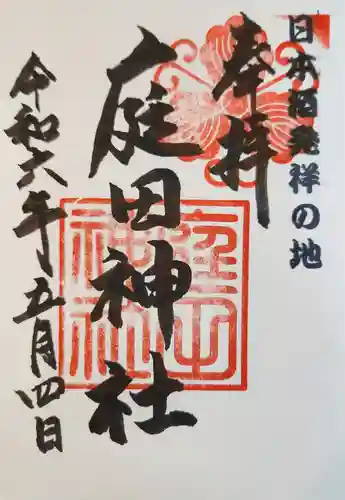 日本酒発祥の地
奉拝
庭田神社
令和六年五月四日
庭田神社